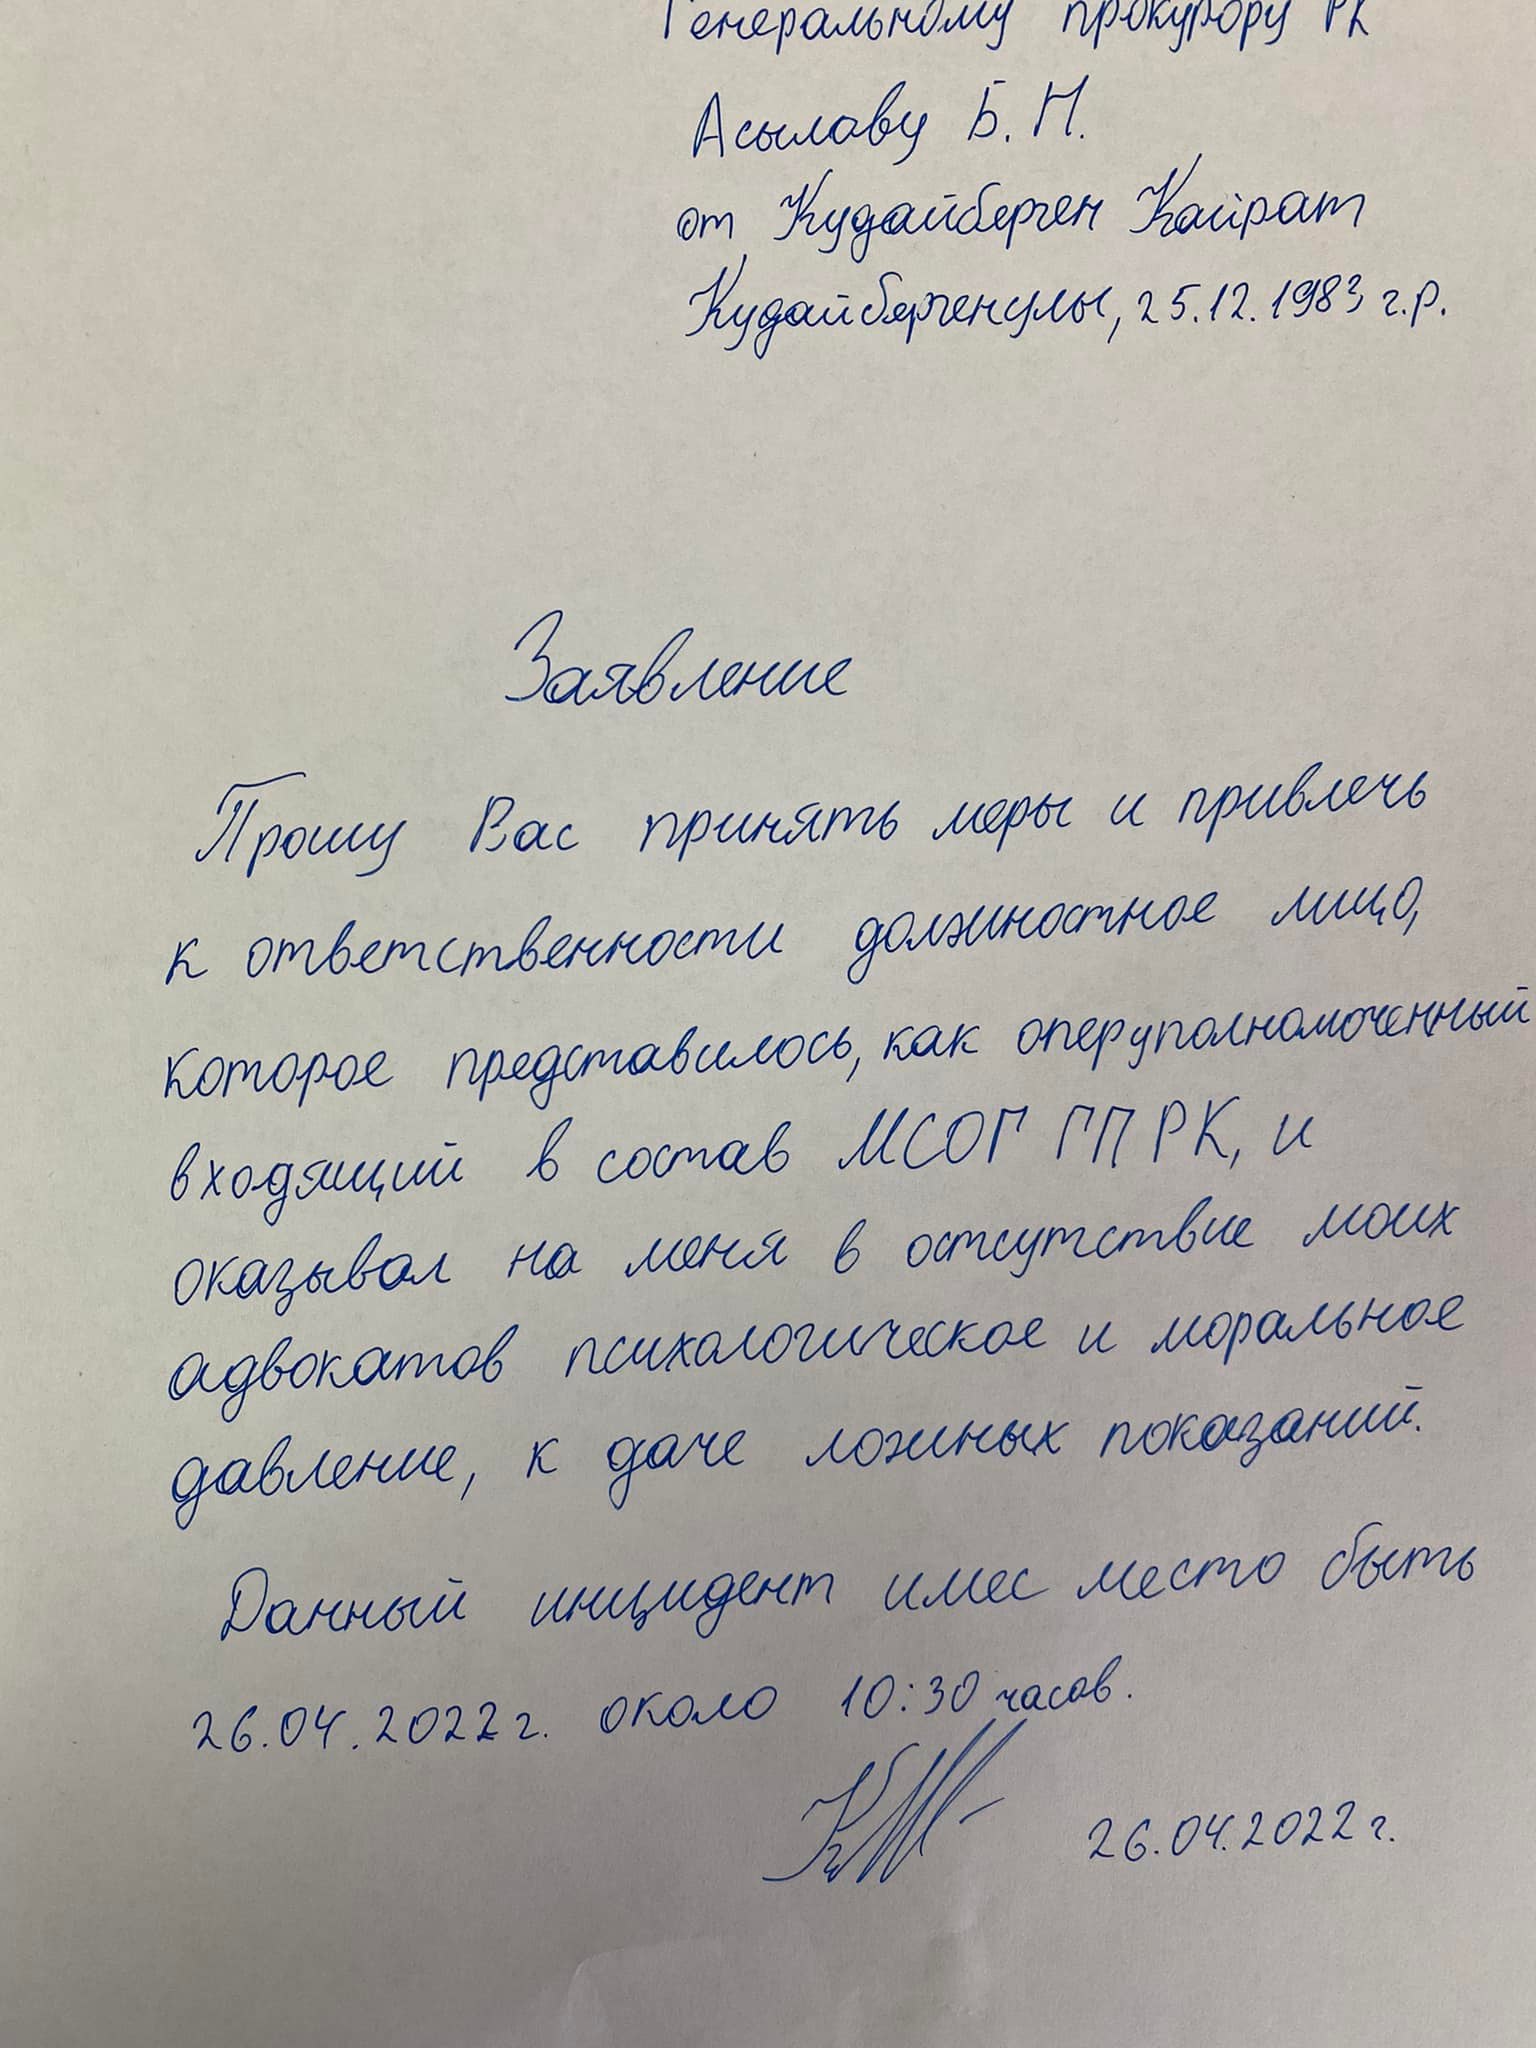 Генеральному прокурору РК
Асылову Б. Н.
от Кудайберген Кайрат
Кудайбергенулы, 25.12.1983 г.р.
Заявление
Прошу Вас принять меры и привлечь
к ответственности должностное лицо,
которое представилось, как оперуполномоченный
входящий в состав МСОГ ГП РК, и
оказывал на меня в отсутствие моих
адвокатов психологическое и моральное
давление, к даче ложных показаний.
Данный инцидент имес место быть
26.04.2022 г. около 10:30 часов.
26.04.2022 г.